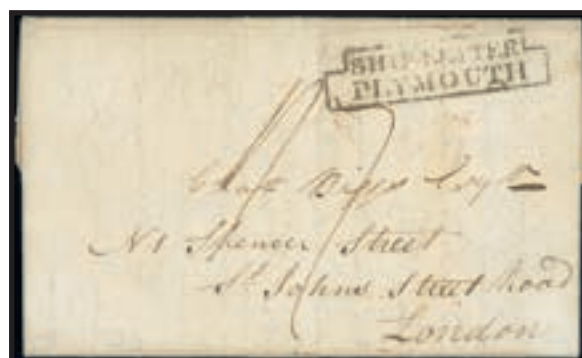 SHIP LETTER
PLYMOUTH
Esqre
No 1 Spencer Street
St Johns Street Road
London